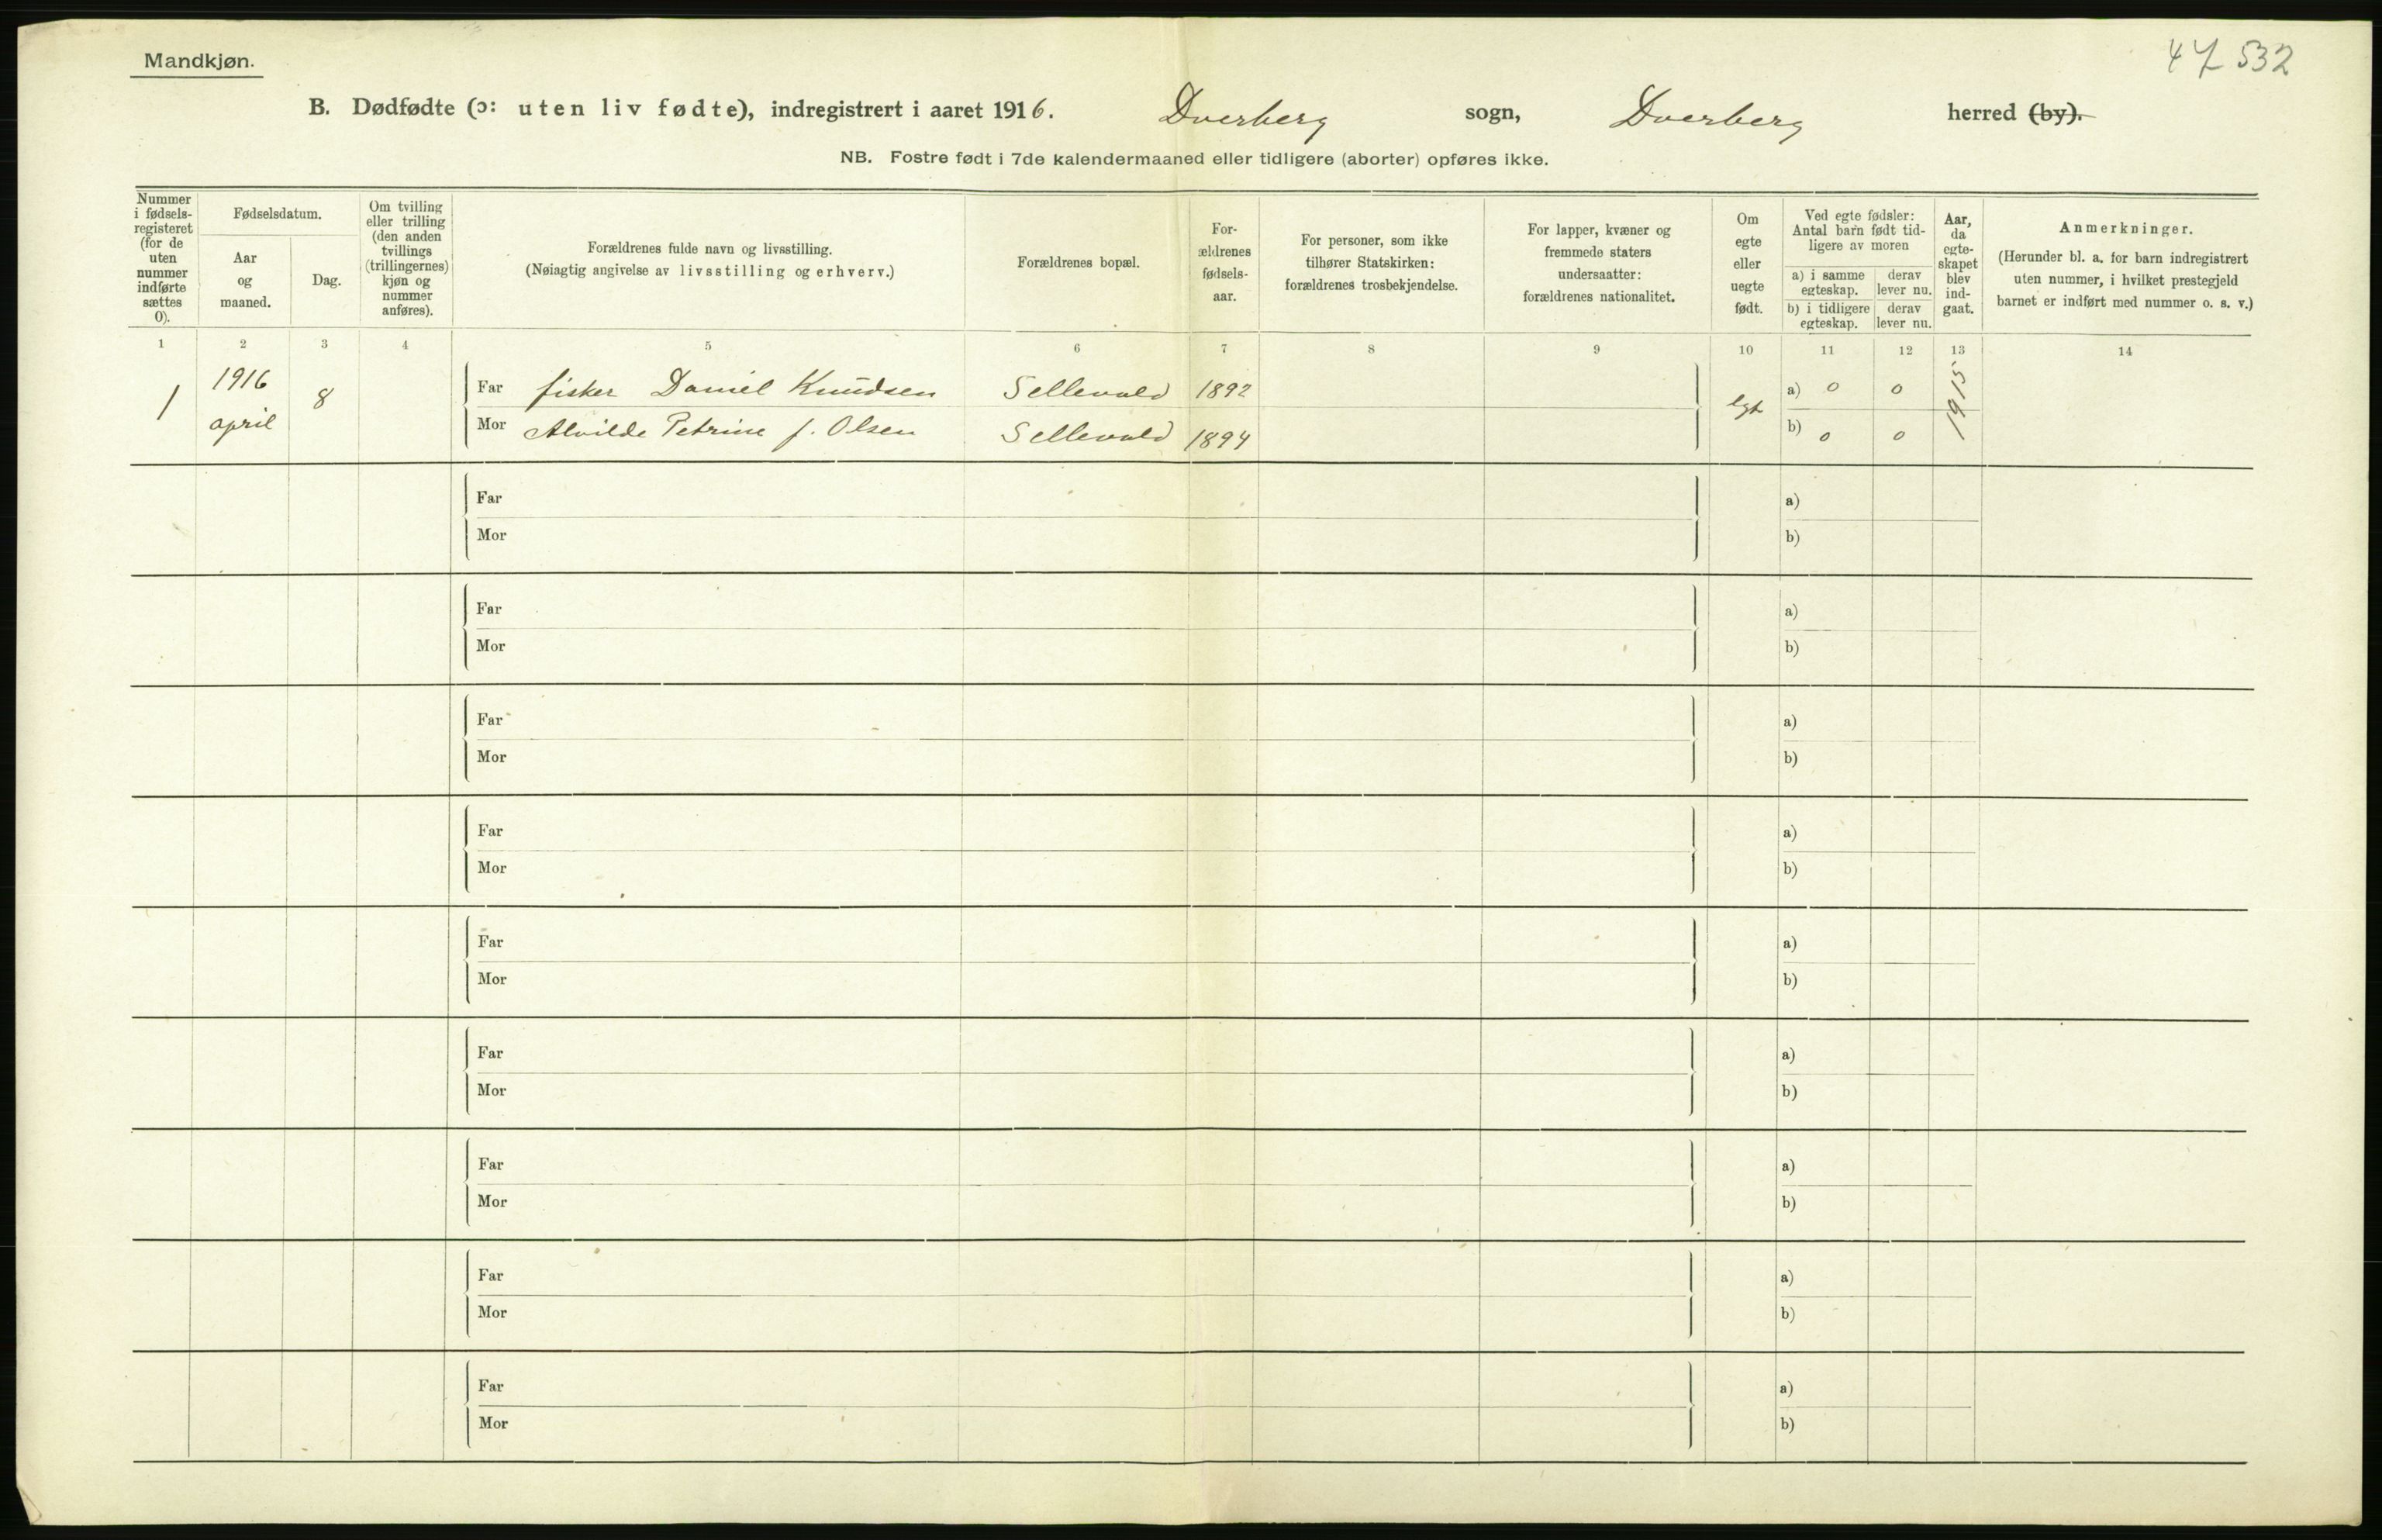 Mandkjøn.
47 532
B. Dødfødte (ɔ: uten liv fødte), indregistrert i aaret 1916. Dverberg sogn, Dverberg herred (by).
NB. Fostre født i 7de kalendermaaned eller tidligere (aborter) opføres ikke.
Nummer i fødsels-registeret (for de uten nummer indførte sættes 0).
Fødselsdatum.
Aar og maaned.
Dag.
Om tvilling eller trilling (den anden tvillings (trillingernes) kjøn og nummer anføres).
Forældrenes fulde navn og livsstilling.
(Nøiagtig angivelse av livsstilling og erhverv.)
Forældrenes bopæl.
For-ældrenes fødsels-aar.
For personer, som ikke tilhører Statskirken: forældrenes trosbekjendelse.
For lapper, kvæner og fremmede staters undersaatter: forældrenes nationalitet.
Om egte eller uegte født.
Ved egte fødsler: Antal barn født tid-ligere av moren
a) i samme egteskap.
derav lever nu.
b) i tidligere egteskap.
derav lever nu.
Aar, da egte-skapet blev ind-gaat.
Anmerkninger.
(Herunder bl. a. for barn indregistrert uten nummer, i hvilket prestegjeld barnet er indført med nummer o. s. v.)
1 2 3 4 5 6 7 8 9 10 11 12 13 14
1 1916 april 8
Far fisker Daniel Knudsen Sellevold 1892
Mor Alvilde Petrine f. Olsen Sellevold 1894
egt
a) 0 0
b) 0 0
1915
Far a)
Mor b)
Far a)
Mor b)
Far a)
Mor b)
Far a)
Mor b)
Far a)
Mor b)
Far a)
Mor b)
Far a)
Mor b)
Far a)
Mor b)
Far a)
Mor b)